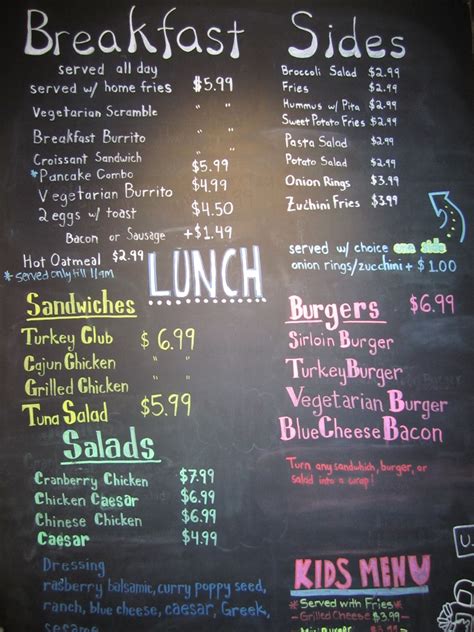 Breakfast
served all day
served w/ home fries $5.99
Vegetarian Scramble " "
Breakfast Burrito " "
Croissant Sandwich $5.99
*Pancake Combo $4.99
Vegetarian Burrito
2 eggs w/ toast $4.50
Bacon or Sausage +$1.49
Hot Oatmeal $2.99
*served only till 11am
Sides
Broccoli Salad $2.99
Fries $2.99
Hummus w/ Pita $2.99
Sweet Potato Fries $2.99
Pasta Salad $2.99
Potato Salad $2.99
Onion Rings $3.99
Zuchini Fries $3.99
served w/ choice one side
onion rings/zucchini + $1.00
LUNCH
Sandwiches
Turkey Club $6.99
Cajun Chicken " "
Grilled Chicken " "
Tuna Salad $5.99
Salads
Cranberry Chicken $7.99
Chicken Caesar $6.99
Chinese Chicken $6.99
Caesar $4.99
Dressing
rasberry balsamic, curry poppy seed,
ranch, blue cheese, caesar, Greek,
sesame
Burgers $6.99
Sirloin Burger
Turkey Burger
Vegetarian Burger
Blue Cheese Bacon
Turn any sandwhich, burger, or
salad into a wrap!
KIDS MENU
*Served with Fries*
Grilled Cheese $3.99
Burger